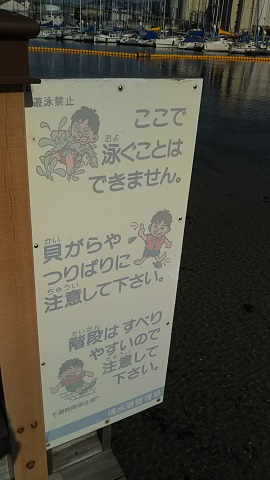 遊泳禁止
ここで
泳ぐことは
できません。
貝がらや
つりばりに
注意して下さい。
階段はすべり
やすいので
注意して
下さい。